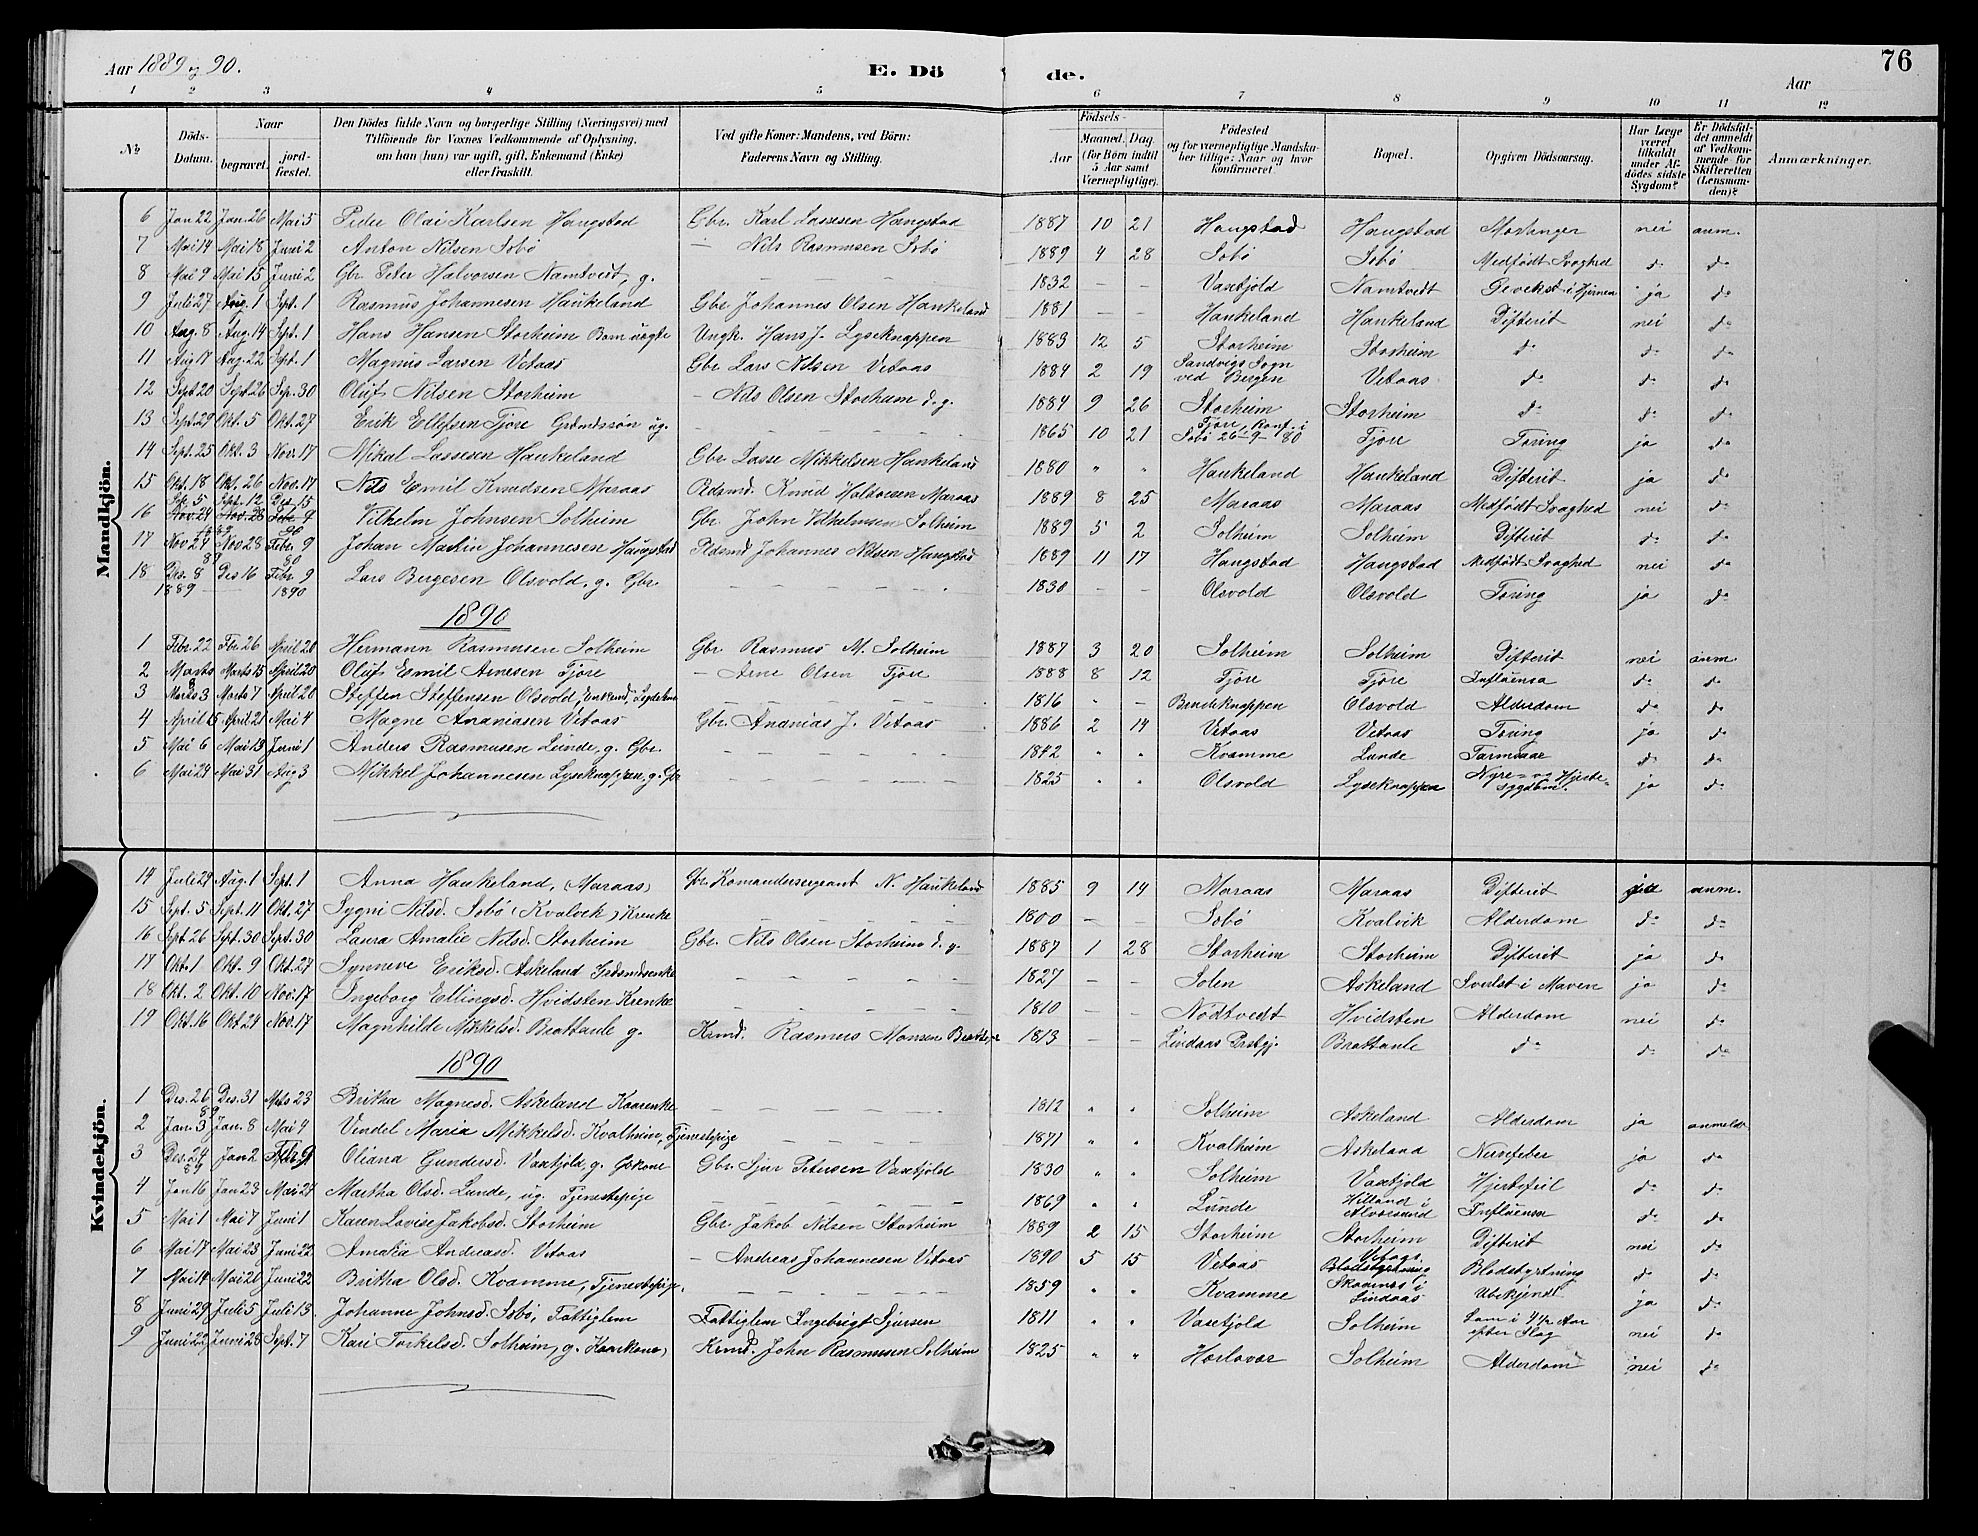 Aar 1889 og 90.
E. Dö
de.
Aar
76
1 2 3 4 5 6 7 8 9 10 11 12
No
Döds-Datum.
Naar
begravet.
jord-fæstet.
Den Dödes fulde Navn og borgerlige Stilling (Næringsvei) med
Tilföiende for Voxnes Vedkommende af Oplysning,
om han (hun) var ugift, gift, Enkemand (Enke)
eller fraskilt.
Ved gifte Koner: Mandens, ved Börn:
Faderens Navn og Stilling.
Födsels-
Aar
Maaned. Dag.
(for Börn indtil
5 Aar samt
Værnepligtige).
Födested
og for værnepligtige Mandska-
ber tillige: Naar og hvor
konfirmeret.
Bopæl.
Opgiven Dödsaarsag.
Har Læge
været
tilkaldt
under Af-
dödes sidste
Sygdom?
Er Dödsfal-
det anmeldt
af Vedkom-
mende for
Skifteretten
(Lensman-
den)?
Anmærkninger.
Mandkjön.
6 Jan 22 Jan. 26 Mai 5 Peder Olai Karlsen Haugstad Gbr. Karl Lassesen Haugstad 1887 10 21 Haugstad Haugstad nei anm.
7 Mai 14 Mai 18 Juni 2 Anton Nilsen Isbö — Nils Rasmusen Isbö 1889 4 28 Isbö Isbö Medfödt Svaghed d° d°
8 Mai 9 Mai 15 Juni 2 Gbr Peter Halvorsen Namtvedt, g. 1832 — — Vaxtjold Namtvedt i Hjernen ja d°
9 Juli 27 Aug. 1 Sept. 1 Rasmus Johannesen Haukeland Gbr Johannes Olsen Haukeland 1881 — — Haukeland Haukeland Difterit nei d°
10 Aug. 8 Aug. 14 Sept. 1 Hans Hansen Storheim Barn uægte Ungk. Hans J. Lyseknappen 1883 12 5 Storheim Storheim d° d° d°
11 Aug 17 Aug. 22 Sept. 1 Magnus Larsen Vetaas Gbr Lars Nilsen Vetaas 1884 2 19 Sandvigs Sogn ved Bergen Vetaas d° d° d°
12 Sept 20 Sept 26 Sep. 30 Oluf Nilsen Storheim — Nils Olsen Storheim d. y. 1884 9 26 Storheim Storheim d° d° d°
13 Sept. 29 Okt. 5 Okt. 27 Erik Ellefsen Fjore ug. 1865 10 21 Fjore, Konf. i Isbö 26-9-80 Fjore Tæring ja d°
14 Sept. 25 Okt. 3 Nov. 17 Mikal Lassesen Haukeland Gbr. Lasse Mikkelsen Haukeland 1880 " " Haukeland Haukeland Difterit ja d°
15 Okt. 18 Okt. 26 Nov. 17 Nils Emil Knudsen Maraas Knud Halvorsen Maraas 1889 8 25 Maraas Maraas Medfödt Svaghed nei d°
16 Sep. 5 Sept. 12 Des 15 Vilhelm Johnsen Solheim Gbr. John Vilhelmsen Solheim 1889 5 2 Solheim Solheim Difterit d° d°
17 Nov 24 89 Nov 28 Febr 9 90 Johan Martin Johannesen Haugstad Johannes Nilsen Haugstad 1889 11 17 Haugstad Haugstad Medfödt Svaghed nei d°
18 Des. 8 1889 Des 16 Febr. 9 1890 Lars Bergesen Olsvold, g. Gbr. 1830 — — Olsvold Olsvold Tæring ja d°
1890
1 Febr. 22 Fbr. 26 April 20 Hermann Rasmusen Solheim Gbr Rasmus M. Solheim 1887 3 20 Solheim Solheim Difterit nei anm
2 Marts 8 Marts 15 April 20 Oluf Emil Arnesen Fjore — Arne Olsen Fjore 1888 8 12 Fjore Fjore Influensa d° d°
3 Marts 3 Marts 7 April 20 Steffen Steffensen Olsvold, Enkemd, 1816 — — Bendeknappen Olsvold Alderdom d° d°
4 April 15 April 21 Mai 4 Magne Ananiasen Vetaas Gbr. Ananias J. Vetaas 1886 2 14 Vetaas Vetaas Tæring ja d°
5 Mai 6 Mai 13 Juni 1 Anders Rasmusen Lunde, g. Gbr. 1842 " " Kvamme Lunde d° d°
6 Mai 24 Mai 31 Aug 3 Mikkel Johannesen Lyseknappen, g. Gbr 1825 " " Olsvold Lyseknappen Nyre- og Hjerte-sygdom. ja d°
Kvindekjön.
14 Juli 29 Aug. 1 Sept. 1 Anna Haukeland, (Maraas) Gbr. Komandersergeant N. Haukeland 1885 9 14 Maraas Maraas Difterit anm.
15 Sept. 5 Sept. 11 Okt. 27 Sygni Nilsd. Isbö (Kvalvik) Krenke 1800 — — Isbö Kvalvik Alderdom d° d°
16 Sept. 26 Sept. 30 Sept. 30 Laura Amalie Nilsd. Storheim Gbr. Nils Olsen Storheim d. y. 1887 1 28 Storheim Storheim Difterit ja d°
17 Okt. 1 Okt. 9 Okt. 27 Synneve Eriksd. Askeland 1827 — — Solen Askeland i Maven ja d°
18 Okt. 2 Okt. 10 Nov. 17 Ingeborg Ellingsd. Hvidsten Krenke 1810 — — Nödtvedt Hvidsten Alderdom nei d°
19 Okt. 16 Okt. 24 Nov. 17 Magnhilde Mikkelsd. Brattaule g. Krmd. Rasmus Monsen 1813 — — Lindaas Brattaule d° d° d°
1890
1 Des. 26 89 Des. 31 Mrts 23 Britha Magnesd. Askeland Kaarenke 1812 " " Solheim Askeland Alderdom ja anmeldt
2 Jan. 3 Jan. 8 Mai 4 Vendel Maria Mikkelsd. Kvalheim, Tjenestepige 1871 " " Kvalheim Askeland Nervefeber ja d°
3 Des. 24 89 Jan 2 Febr 9 Oliana Gundersd. Vaxtjold, g. Gbkone Gbr. Sjur Petersen Vaxtjold 1830 " " Solheim Vaxtjold Hjertefeil d° d°
4 Jan 16 Jan 23 Mai 24 Martha Olsd. Lunde, ug. Tjenestepige 1869 " " Lunde Hilland i Alversund Influensa d° d°
5 Mai 1 Mai 7 Juni 1 Karen Lovise Jakobsd. Storheim Gbr. Jakob Nilsen Storheim 1889 2 15 Storheim Storheim Difterit nei d°
6 Mai 17 Mai 23 Juni 22 Amalia Andreasd. Vetaas — Andreas Johannesen Vetaas 1890 5 15 Vetaas Vetaas Blodstyrtning d° d°
7 Mai 14 Mai 20 Juni 22 Britha Olsd. Kvamme, Tjenestepige, 1859 " " Kvamme i Lindaas Ubekjendt ja d°
8 Juni 29 Juli 5 Juli 13. Johanne Johnsd. Isbö, Fattiglem Fattiglem Ingebrigt Sjursen 1811 " " Vaxtjold Solheim Lam i 4½ Aar efter Slag nei d°
9 Juni 22 Juni 28 Sept. 7 Kari Torkelsd. Solheim, g. Kaarkone, Krmd. John Rasmusen Solheim 1825 " " Solheim Alderdom nei d°